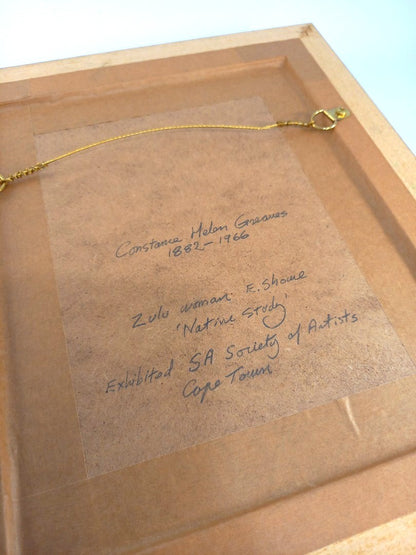 Constance Helen Greaves
1882-1966
Zulu woman: E. Showe
'Native Study'
Exhibited SA Society of Artists
Cape Town